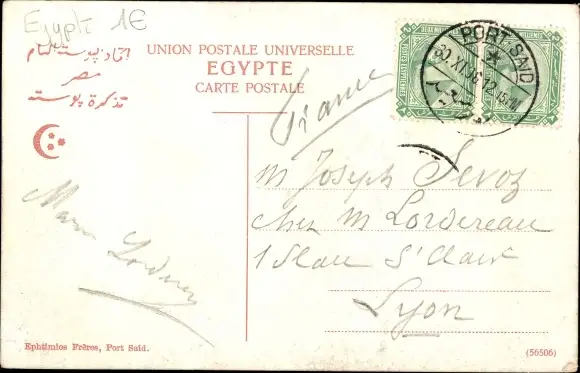 Egypte 1E
UNION POSTALE UNIVERSELLE
EGYPTE
CARTE POSTALE
اتحاد پوسته عام
مصر
تذكرة پوسته
France
PORT SAID
30 XI 06 12
M Joseph Sevoz
chez M Lordereau
1 Place St Clair
Lyon
Ephtimios Frères, Port Said.
(56506)